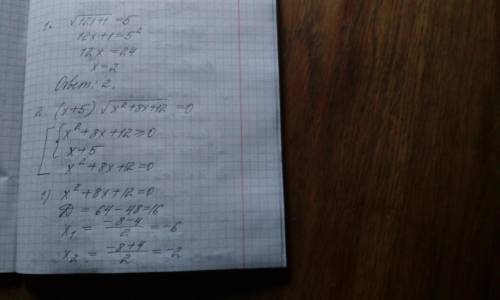 1. √12x+1 = 5
12x+1 = 5²
12x = 24
x = 2
Ответ: 2.
2. (x+5) √x²+8x+12 = 0
[ { x²+8x+12 ≥ 0
x+5
x²+8x+12=0
1) x²+8x+12=0
D = 64-48=16
x₁ = (-8-4)/2 = -6
x₂ = (-8+4)/2 = -2